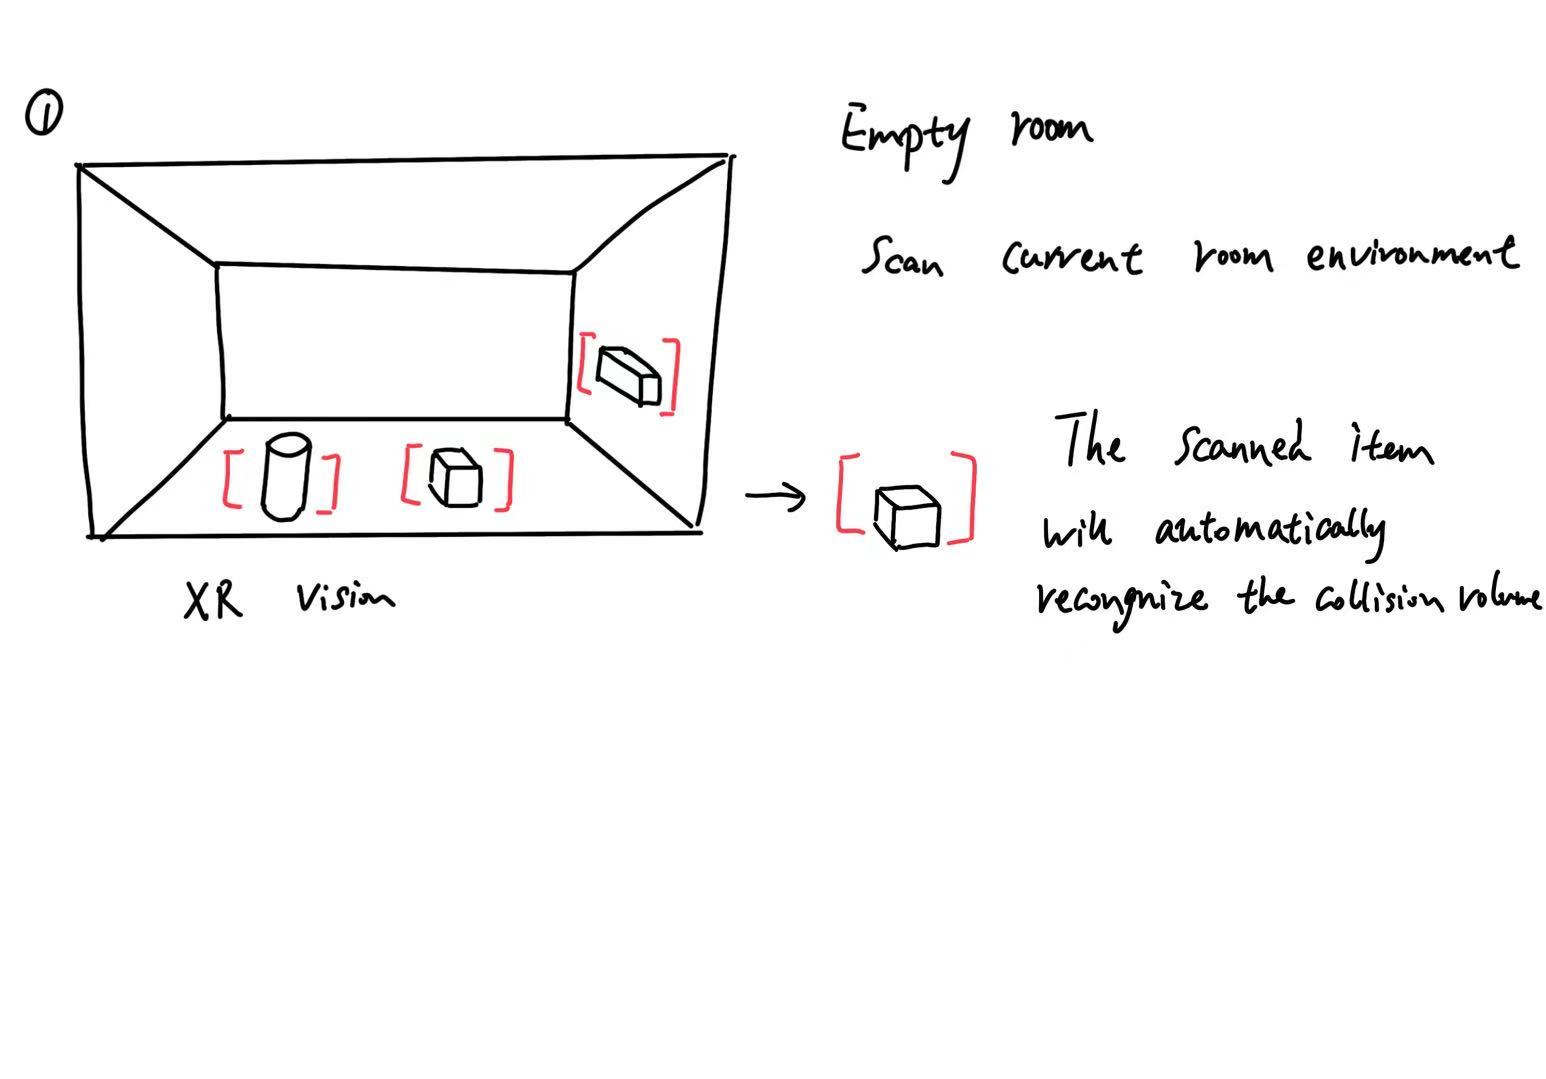 ①
Empty room
Scan current room environment
The scanned item
will automatically
recongnize the collision volume
XR Vision